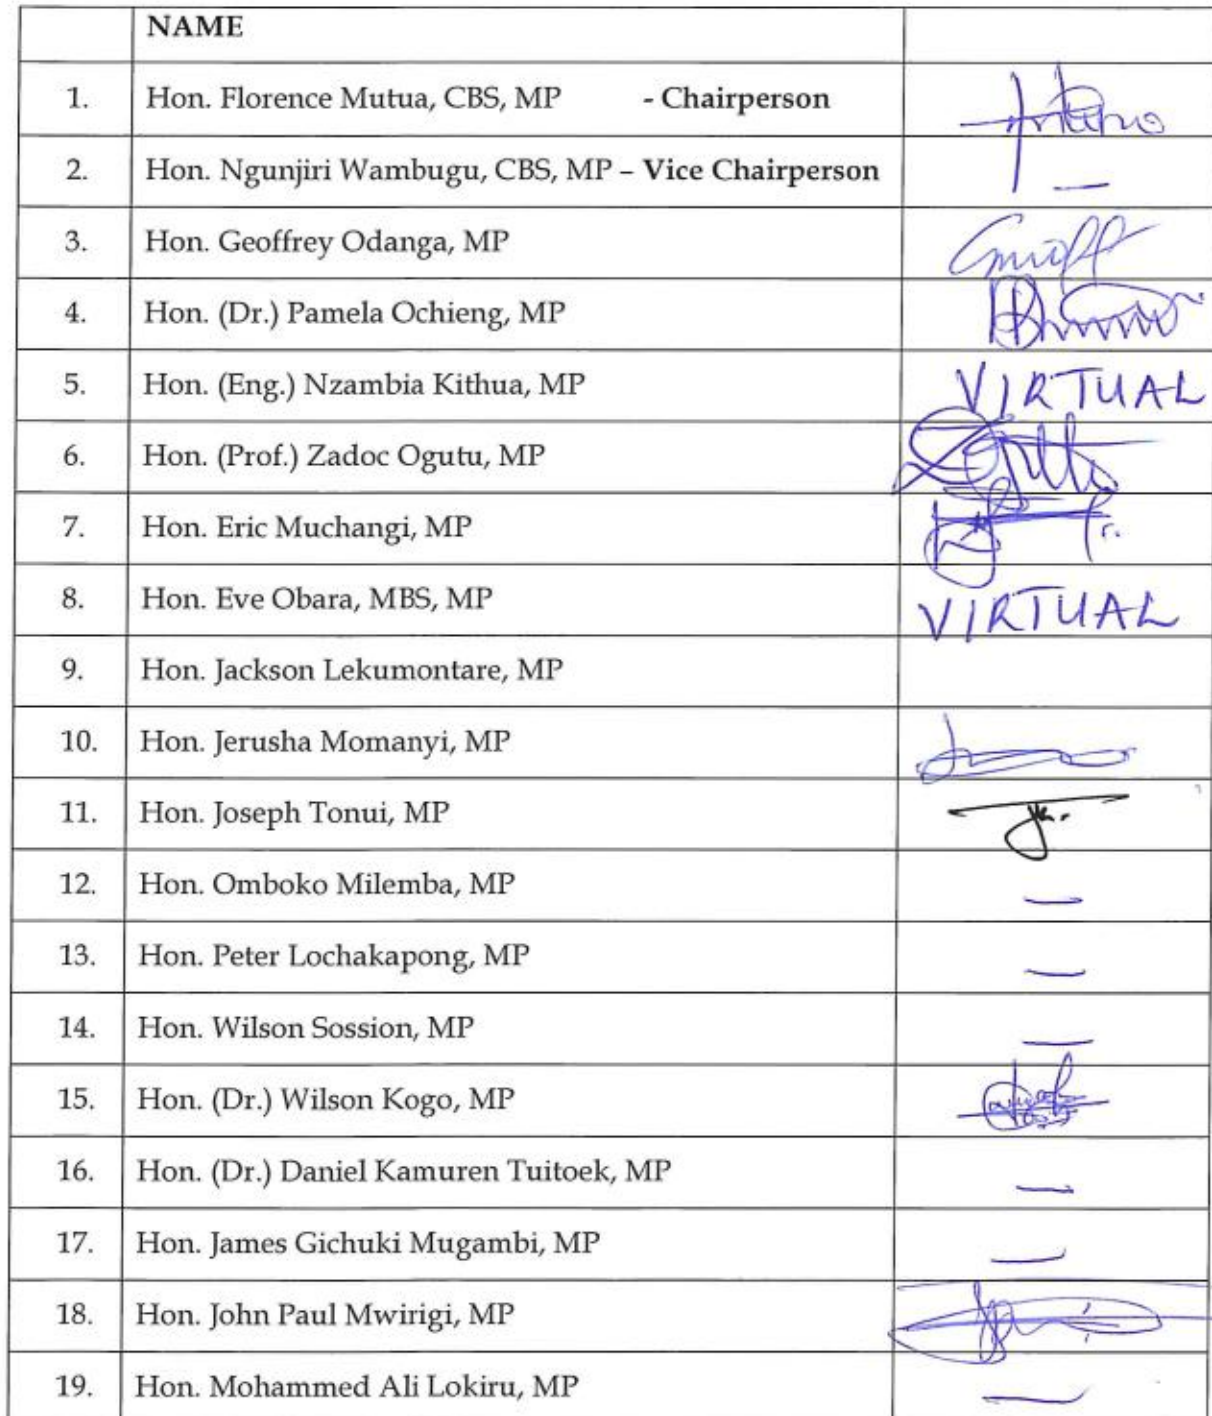 NAME
1. Hon. Florence Mutua, CBS, MP - Chairperson
2. Hon. Ngunjiri Wambugu, CBS, MP – Vice Chairperson —
3. Hon. Geoffrey Odanga, MP
4. Hon. (Dr.) Pamela Ochieng, MP
5. Hon. (Eng.) Nzambia Kithua, MP VIRTUAL
6. Hon. (Prof.) Zadoc Ogutu, MP
7. Hon. Eric Muchangi, MP
8. Hon. Eve Obara, MBS, MP VIRTUAL
9. Hon. Jackson Lekumontare, MP
10. Hon. Jerusha Momanyi, MP
11. Hon. Joseph Tonui, MP
12. Hon. Omboko Milemba, MP —
13. Hon. Peter Lochakapong, MP —
14. Hon. Wilson Sossion, MP —
15. Hon. (Dr.) Wilson Kogo, MP
16. Hon. (Dr.) Daniel Kamuren Tuitoek, MP —
17. Hon. James Gichuki Mugambi, MP —
18. Hon. John Paul Mwirigi, MP
19. Hon. Mohammed Ali Lokiru, MP —